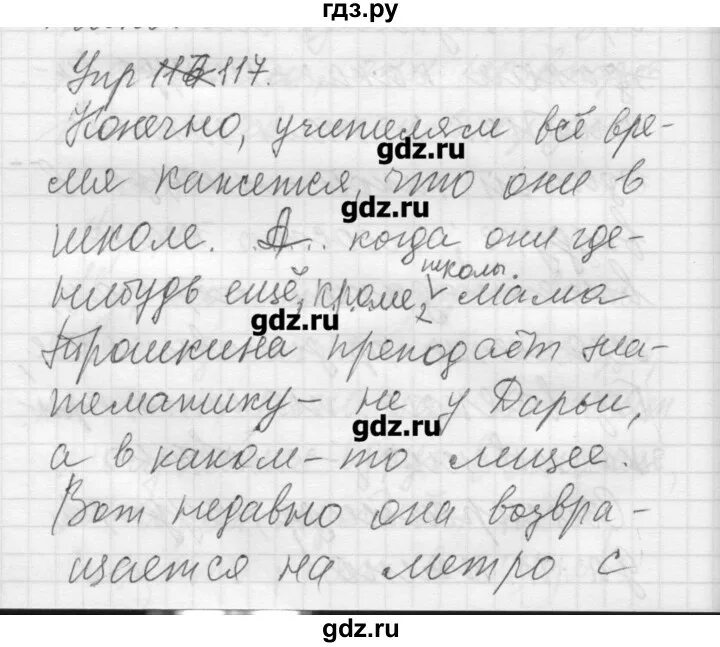 гдз.ру
Упр 117.
Конечно, учителям всё вре-
мя кажется, что они в
gdz.ru
школе. А.. когда они где-
gdz.ru
школы.
нибудь ещё, кроме, мама
gdz.ru
Трошкина преподаёт ма-
тематику - не у Дарьи,
gdz.ru
а в каком-то лицее.
Вот недавно она возвра-
щается на метро с
gdz.ru